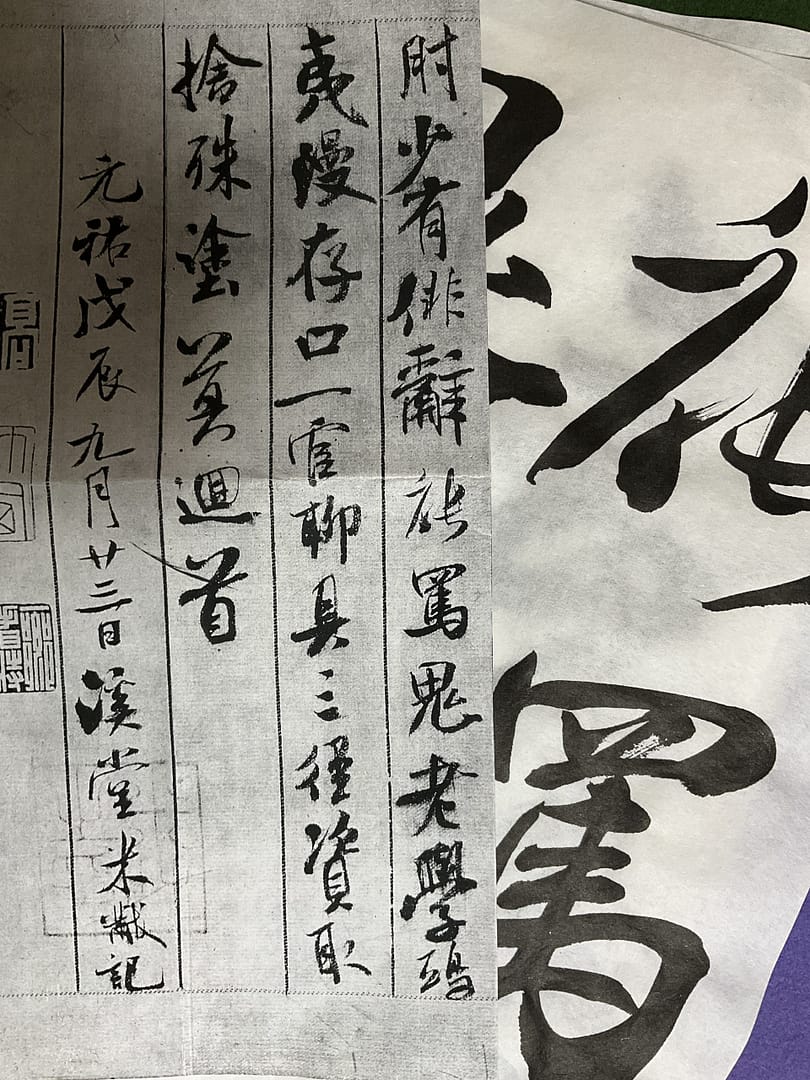 能罵
肘少有俳辭能罵鬼老學鴟
夷漫存口一官聊具三徑資取
捨殊塗莫迴首
元祐戊辰九月廿三日溪堂米黻記